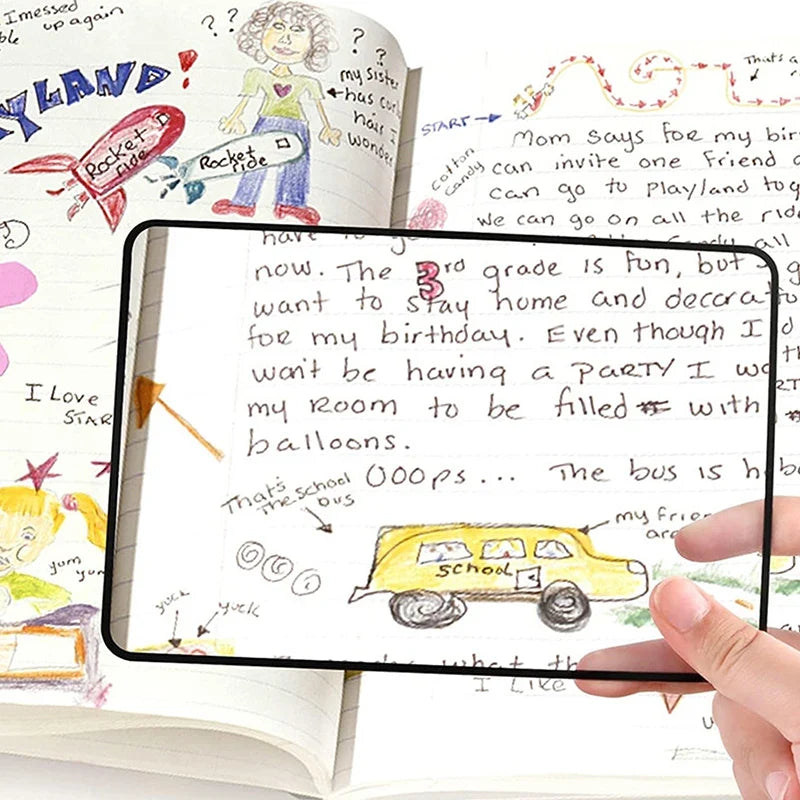 I messed
up again
? ?
? ?
YLAND!
my sister
has cur
hair I
wonder
Rocket
ride
Rocket
ride
I Love
STAR
yum
yum
That's a
START
cotton
candy
Mom says for my bir
can invite one friend
can go to Playland tog
we can go on all the rid
all
have to g
now. The 3rd grade is fun, but
want to stay home and decorat
for my birthday. Even though I
won't be having a PARTY I wo
my Room to be filled with
balloons.
OOOps... The bus is h
That's
the school
bus
my frie
are
school
yuck
yuck
what th
I Like